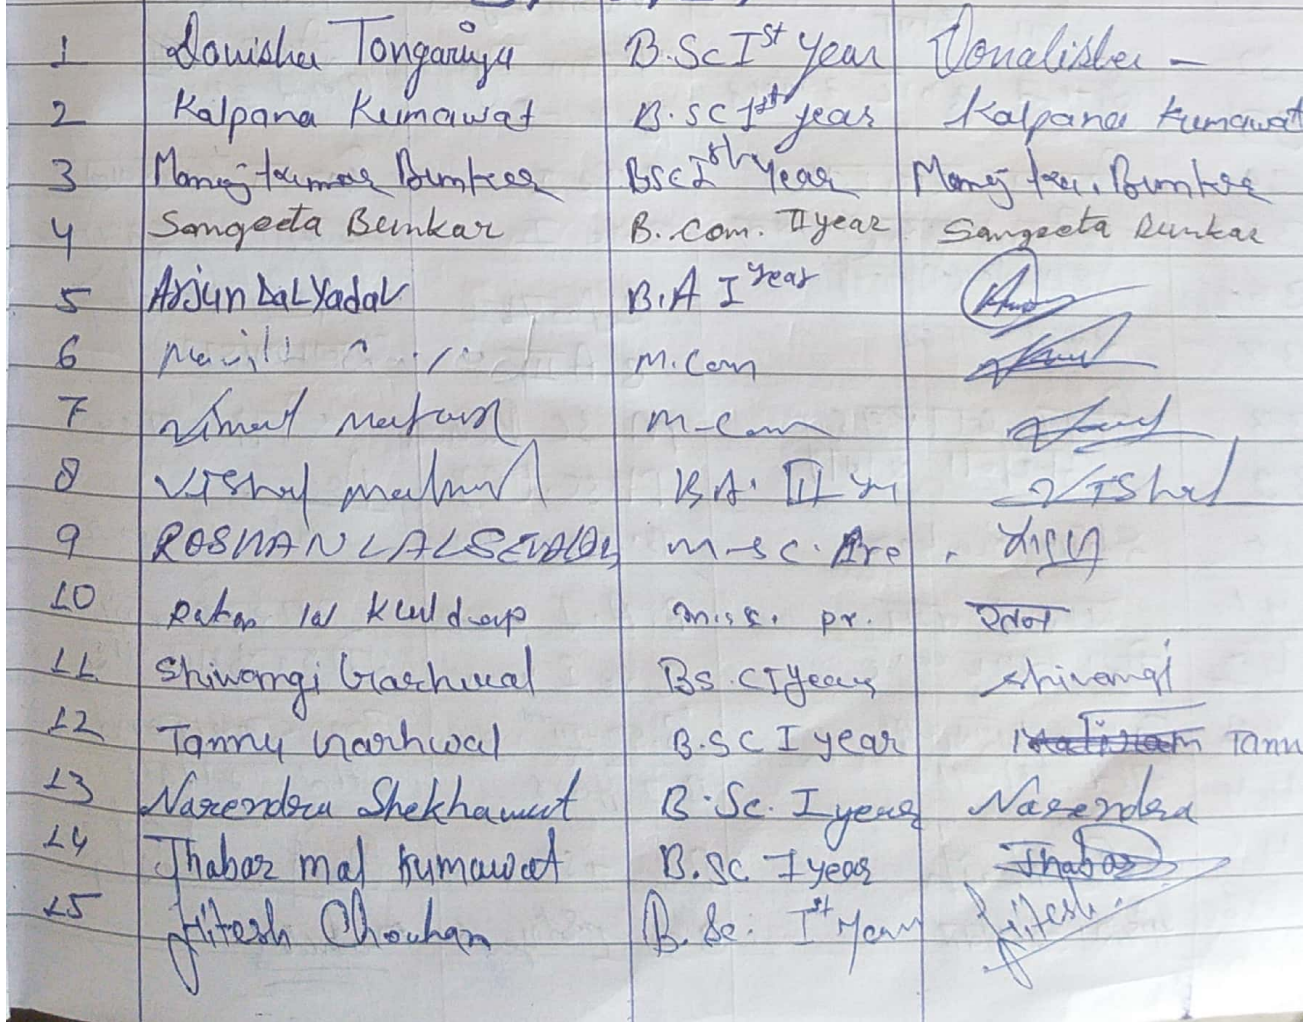 1 Tongariya B.Sc Ist Year
2 Kalpana Kumawat B.Sc Ist year Kalpana Kumawat
3 Manoj Kumar Bunker BSc Ist Year Manoj Ku. Bunker
4 Sangeeta Bunkar B. Com. II year Sangeeta Bunkar
5 Arjun Lal Yadav B.A I year
6 M.Com
7 M-Com
8 Vishal B.A. II yr Vishal
9 ROSHAN LAL M-sc. Pre
10 Ratan lal Kuldeep M.sc. pr. रतन
11 Shivangi Garhwal Bs.c I year Shivangi
12 Tannu Garhwal B.SC I year Tannu
13 Narendra Shekhawat B.Sc. I year Narendra
14 Jhabar mal Kumawat B.Sc I year Jhabar
15 Jitesh Chouhan B.Sc. Ist Year Jitesh